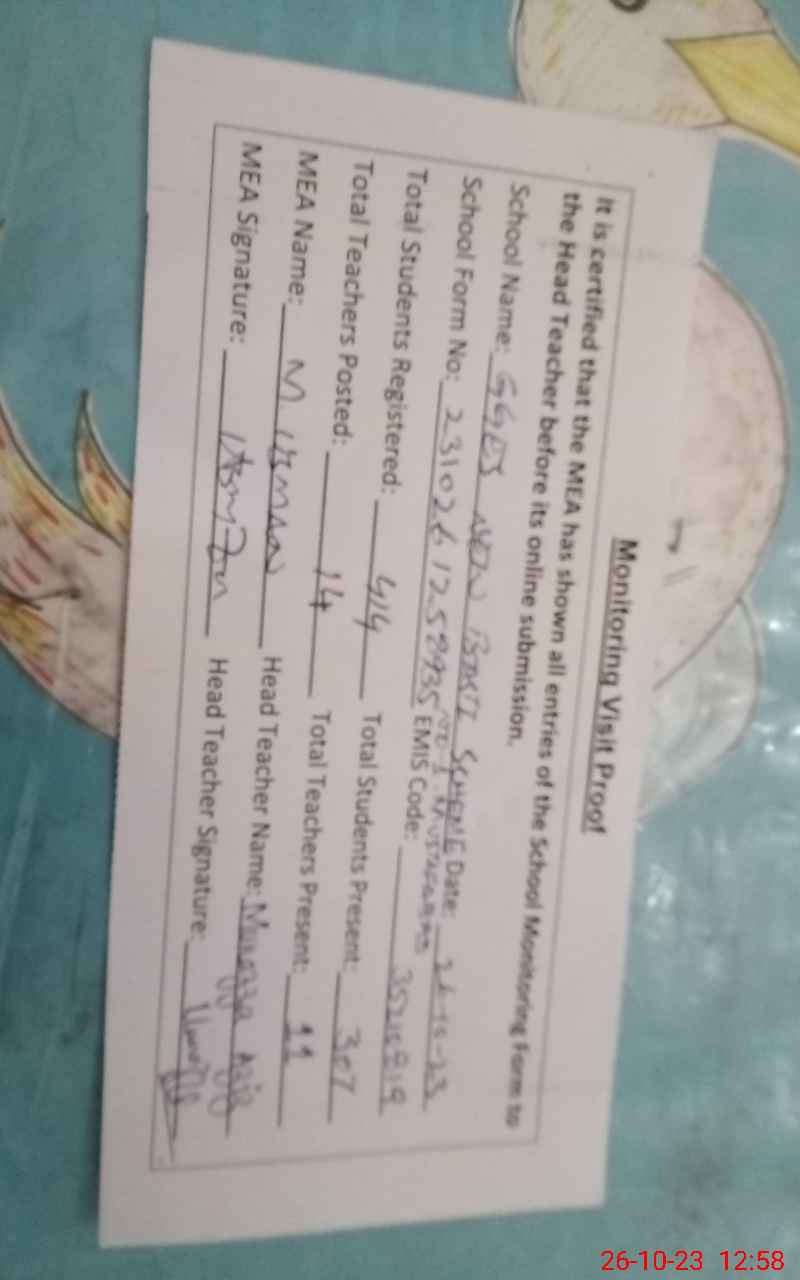 Monitoring Visit Proof
It is certified that the MEA has shown all entries of the School Monitoring Form to
the Head Teacher before its online submission.
School Name: GGES NEW BASTI SCHEME Date: 26-10-23
NO 1 MUSTAFABAD
School Form No: 2310261258935 EMIS Code: 35210819
Total Students Registered: 414 Total Students Present: 307
Total Teachers Posted: 14 Total Teachers Present: 11
MEA Name: M. USMAN Head Teacher Name:
MEA Signature: Head Teacher Signature:
26-10-23 12:58